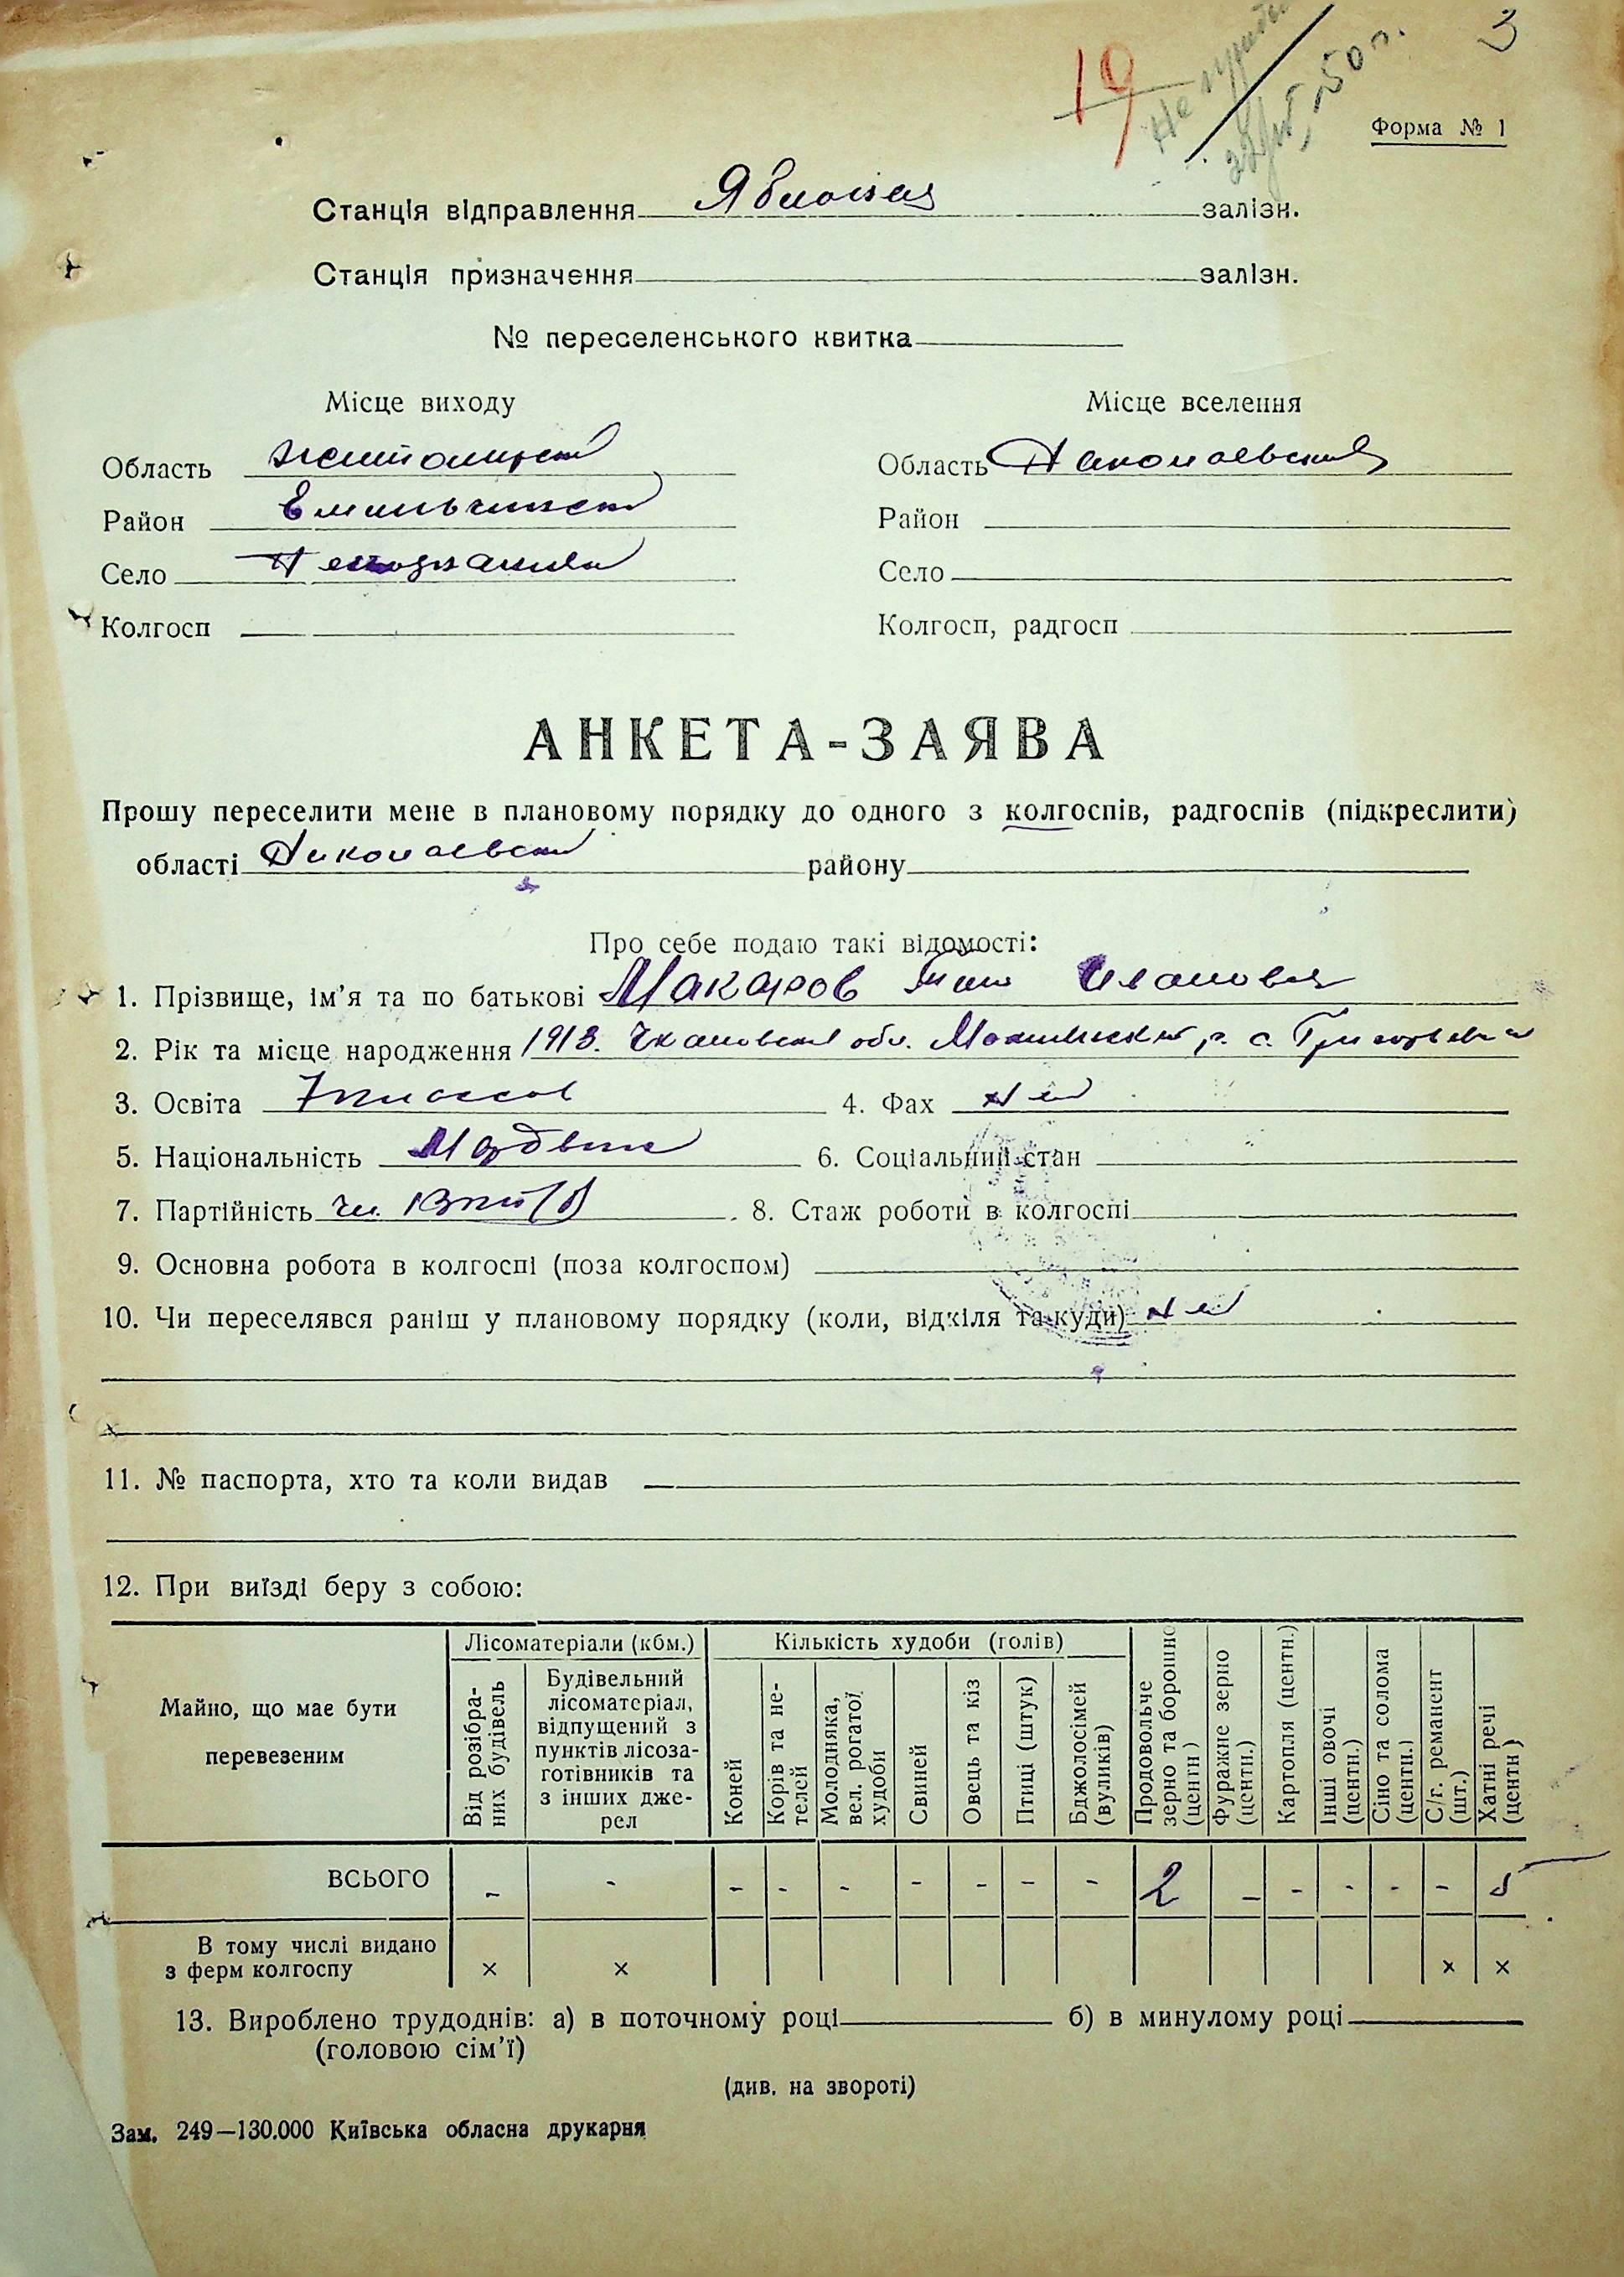 3
19
50 г.
Форма № 1
Станція відправлення Яблоная залізн.
Станція призначення залізн.
№ переселенського квитка
Місце виходу Місце вселення
Область Житомирск Область Николаевский
Район Емильчинск Район
Село Село
Колгосп Колгосп, радгосп
АНКЕТА-ЗАЯВА
Прошу переселити мене в плановому порядку до одного з колгоспів, радгоспів (підкреслити)
області Николаевск району
Про себе подаю такі відомості:
1. Прізвище, ім’я та по батькові Макаров Иванович
2. Рік та місце народження 1913. Чкаловская обл. р. с. Григорьевка
3. Освіта 7 классов 4. Фах нет
5. Національність Мордвин 6. Соціальний стан
7. Партійність чл. ВКП(б) 8. Стаж роботи в колгоспі
9. Основна робота в колгоспі (поза колгоспом)
10. Чи переселявся раніш у плановому порядку (коли, відкіля та куди) нет
11. № паспорта, хто та коли видав
12. При виїзді беру з собою:
Майно, що має бути перевезеним
Лісоматеріали (кбм.)
Від розібра-
них будівель
Будівельний
лісоматеріал,
відпущений з
пунктів лісоза-
готівників та
з інших дже-
рел
Кількість худоби (голів)
Коней
Корів та не-
телей
Молодняка,
вел. рогатої
худоби
Свиней
Овець та кіз
Птиці (штук)
Бджолосімей
(вуликів)
Продовольче
зерно та борошно
(центн)
Фуражне зерно
(центн.)
Картопля (центн.)
Інші овочі
(центн.)
Сіно та солома
(центн.)
С/г. реманент
(шт.)
Хатні речі
(центн)
ВСЬОГО - - - - - - - - - 2 - - - - - 5
В тому числі видано
з ферм колгоспу × × × ×
13. Вироблено трудоднів: а) в поточному році б) в минулому році
(головою сім’ї)
(див. на звороті)
Зам. 249—130.000 Київська обласна друкарня